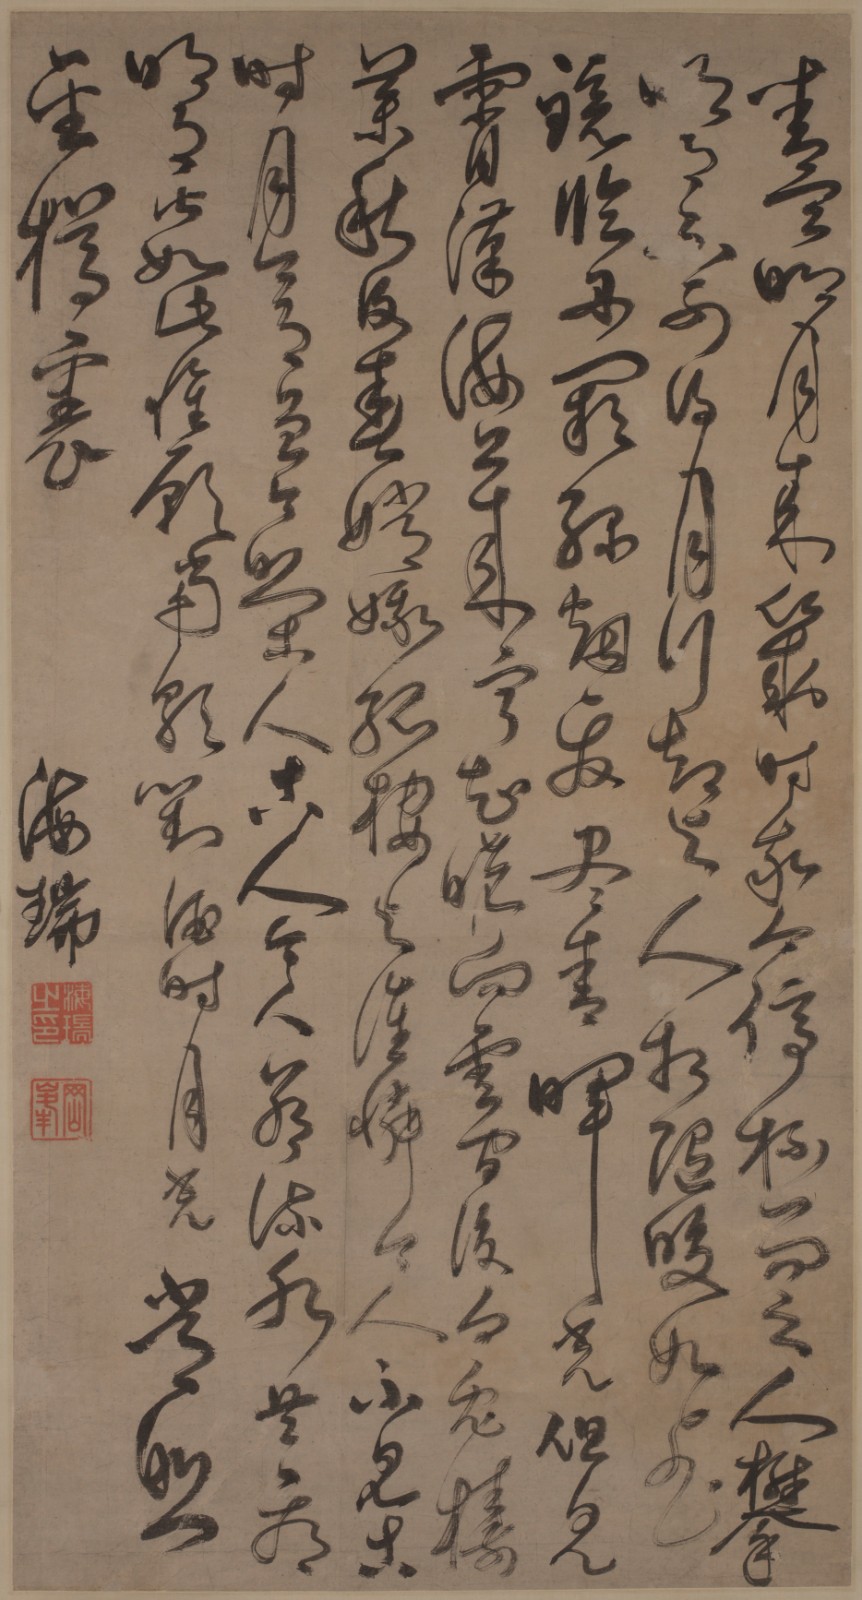 青空明月來幾時我今停杯一問之人攀
明月不可得月行却與人相隨皎如飛
鏡臨丹闕綠煙滅盡清暉發但見
宵從海上來寧知曉向雲間沒白兔搗
藥秋復春嫦娥孤棲與誰憐今人不見古
時月今月曾經照古人古人今人若流水共看
明月皆如此惟願當歌對酒時月光常照
金樽裏
海瑞
海瑞之印
剛峯